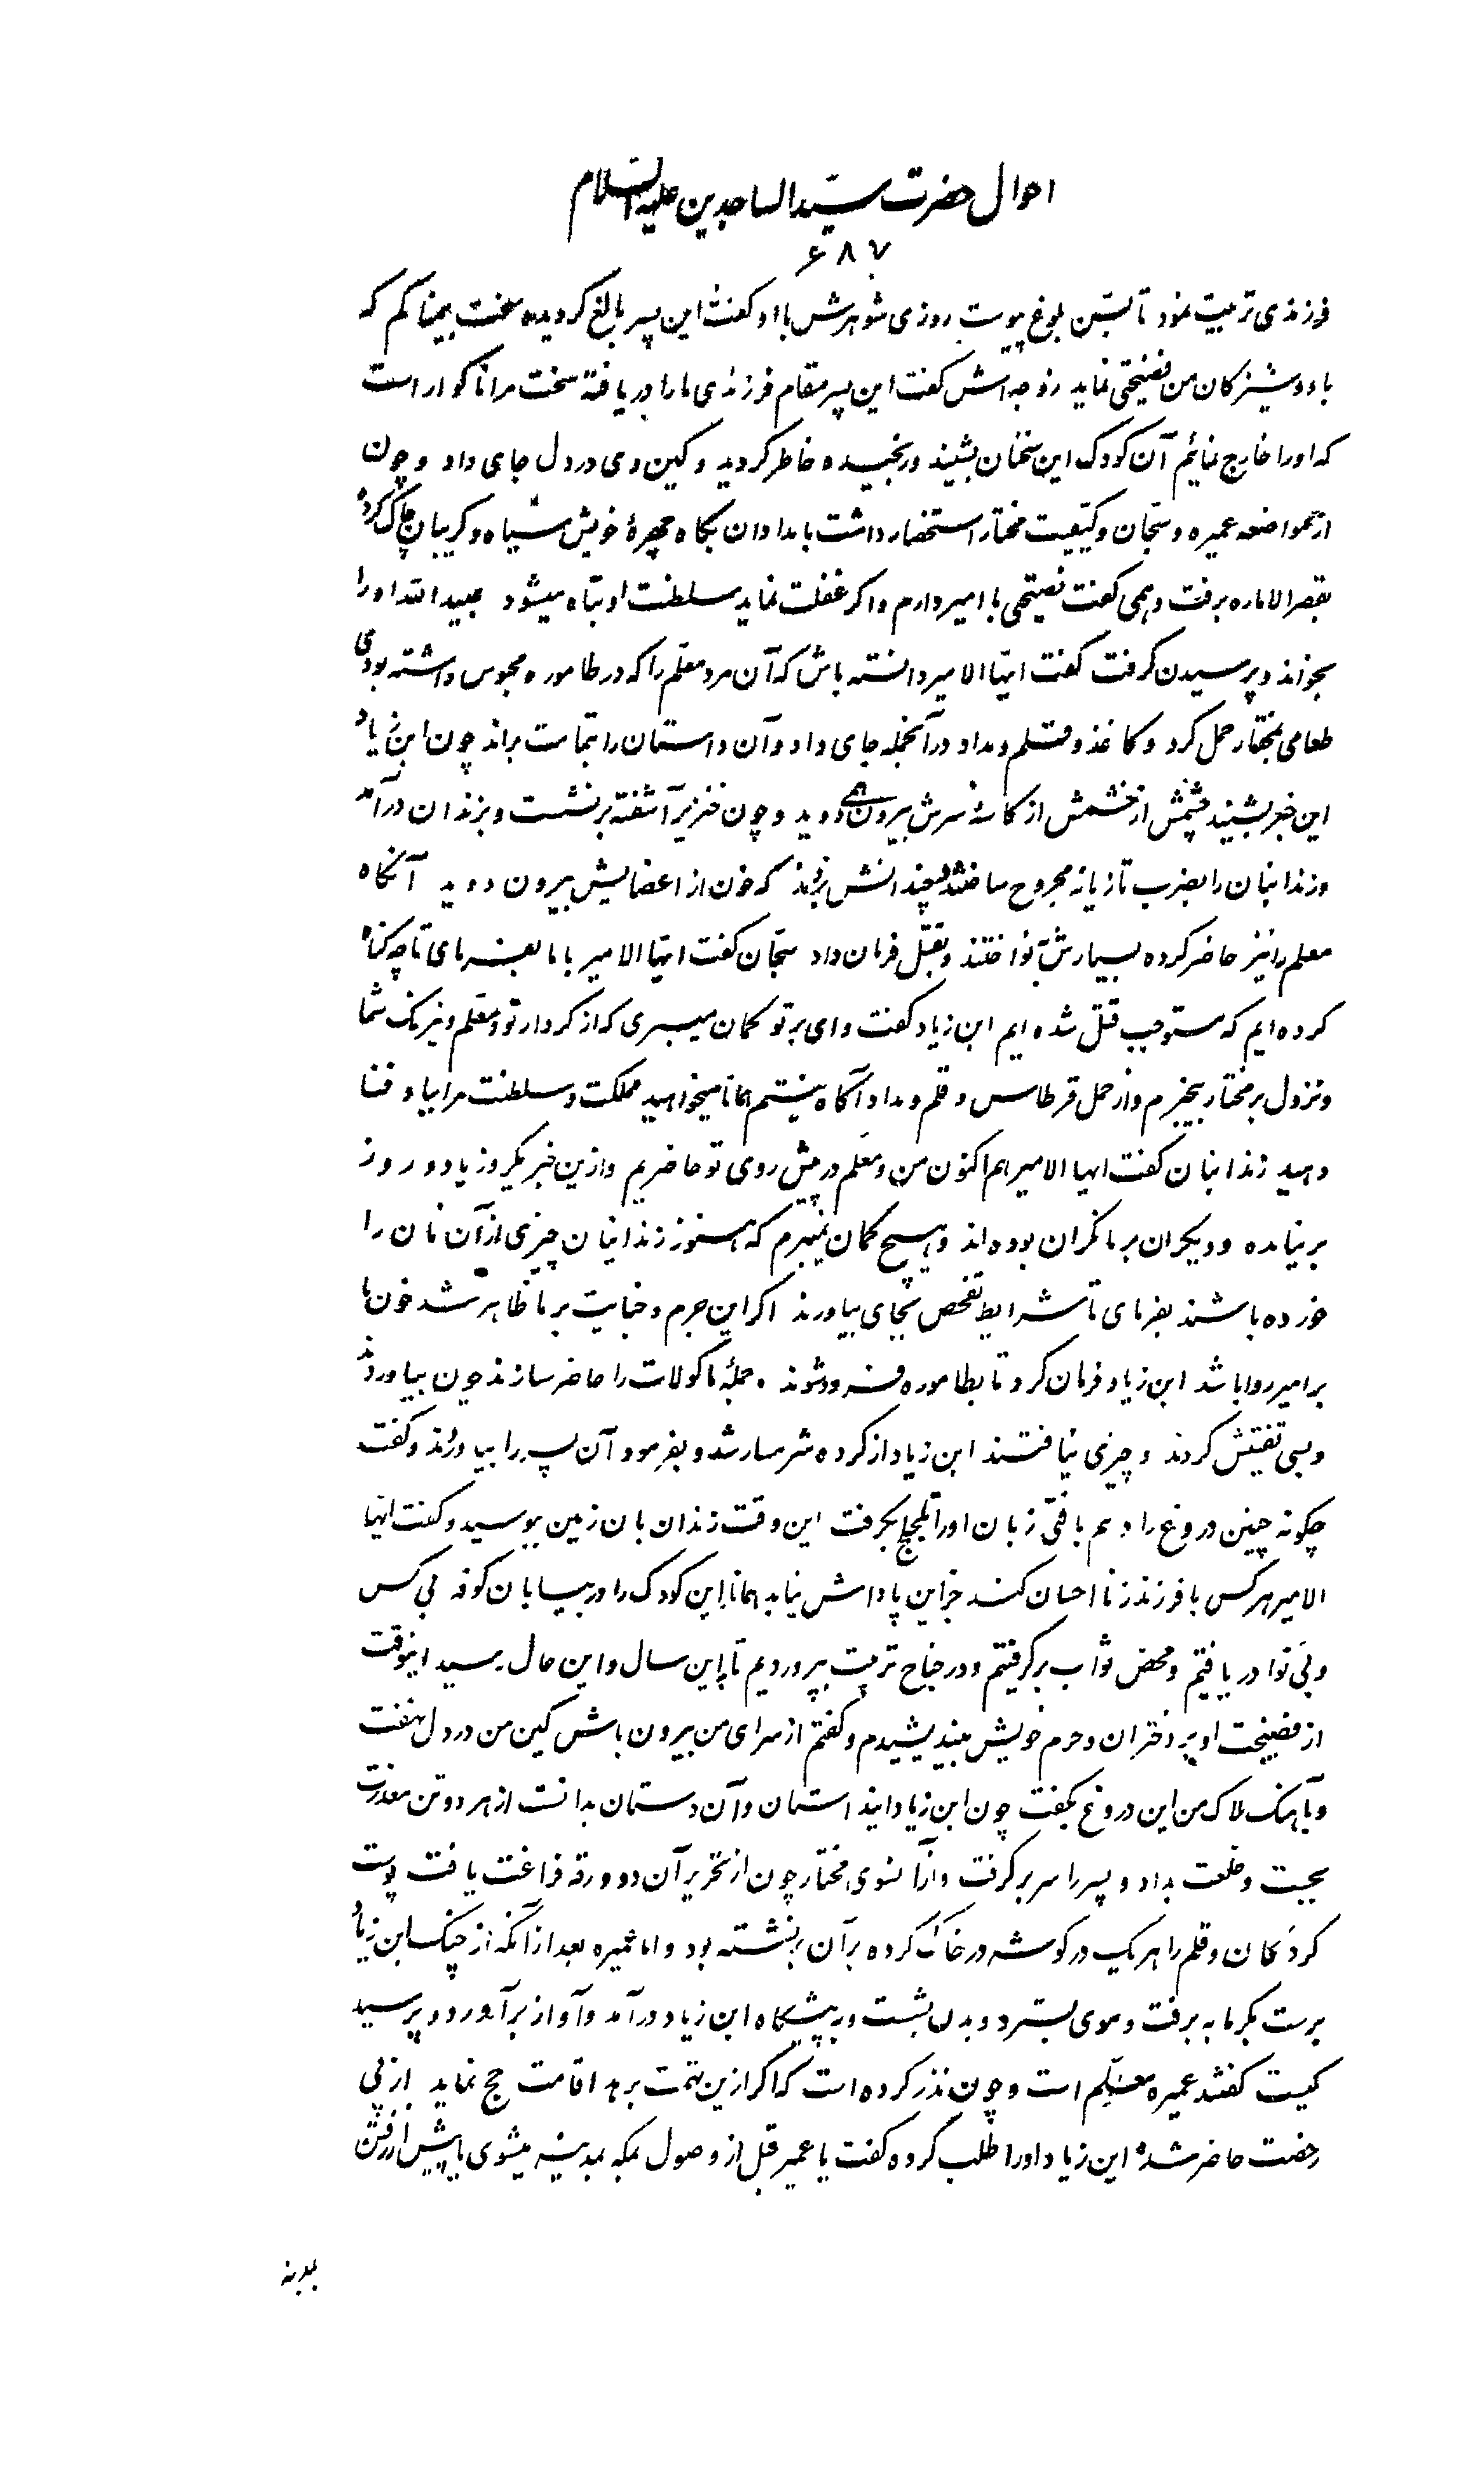 احوال حضرت سیّد الساجدین علیه السّلام
۶۸۷
فرزندی تربیت نمود تا بسّن بلوغ پیوست روزی شوهرش با او گفت این پسر بالغ گردیده سخت بیمناکم که
با دوشیزگان من فضیحتی نماید زوجه اش گفت این پسر مقام فرزندی ما را دریافته سخت مرا ناگوار است
که او را خارج نمائیم آن کودک این سخنان بشنید و رنجیده خاطر گردید و کین وی در دل جای داد و چون
از مواضعه عمیره و سجّان و کیفیت مختار استحضار داشت بامدادان بگاه چهرهٔ خویش سیاه و گریبان چاک کرده
بقصر الاماره برفت و همی گفت نصیحتی با امیر دارم و اگر غفلت نماید سلطنت او تباه میشود عبید الله او را
بخواند و پرسیدن گرفت گفت ایّها الامیر دانسته باش که آن مرد معلّم را که در طاموره محبوس داشته بودی
طعامی بمختار حمل کرد و کاغذ و قلم و مداد در آنجمله جای داد و آن داستان را بتمامت براند چون ابن زیاد
این خبر بشنید چشمش از خشمش از کاسهٔ سرش بیرون همی دوید و چون خنزیر آشفته برنشست و بزندان درآمد
و زندانبان را بضرب تازیانه مجروح ساختند و چندانش بزدند که خون از اعضایش بیرون دوید آنگاه
معلم را نیز حاضر کرده بسیارش بنواختند و بقتل فرمان داد سجّان گفت ایّها الامیر با ما بفرمای تا چه گناه
کرده ایم که مستوجب قتل شده ایم ابن زیاد گفت وای بر تو گمان میبری که از کردار تو و معلم و نیرنگ شما
و نزول بر مختار بیخبرم و از حمل قرطاس و قلم و مداد آگاه نیستم همانا میخواهید مملکت و سلطنت مرا بباد فنا
دهید زندانبان گفت ایها الامیر هم اکنون من و معلم در پیش روی تو حاضریم و ازین خبر یکروز یا دو روز
بر نیامده و دیگران بر ما نگران بوده اند و هیچ گمان نمیبرم که هنوز زندانیان چیزی از آن نان را
خورده باشند بفرمای تا شرایط تفحص بجای بیاورند اگر این جرم و خیانت بر ما ظاهر شد خون ما
بر امیر روا باشد ابن زیاد فرمان کرد تا بطاموره فرود شوند و جملهٔ ماکولات را حاضر سازند چون بیاوردند
و بسی تفتیش کردند و چیزی نیافتند ابن زیاد از کرده شرمسار شد و بفرمود آن پسر را بیاورند و گفت
چگونه چنین دروغ را در هم بافتی زبان او را تلجلج بگرفت این وقت زندان بان زمین ببوسید و گفت ایّها
الامیر هر کس با فرزند زنا احسان کند جز این پاداش نیابد همانا این کودک را در بیابان کوفه بی کس
و بی نوا دریافتیم و محض ثواب برگرفتیم و در جناح تربیت بپروردیم تا باین سال و این حال رسید اینوقت
از فضیحت او بر دختران و حرم خویش بیندیشیدم و گفتم از سرای من بیرون باش کین من در دل نهفت
و بآهنگ هلاک من این دروغ بگفت چون ابن زیاد اینداستان و آن دستان بدانست از هر دو تن معذرت
بجست و خلعت بداد و پسر را سر برگرفت و از آنسوی مختار چون از تحریر آن دو ورقه فراغت یافت پوست
گردکان و قلم را هر یک در گوشه در خاک کرده بر آن بنشسته بود و اما عمیره بعد از آنکه از چنگ ابن زیاد
برست بگرمابه برفت و موی بسترد و بدن بشست و بپیشگاه ابن زیاد درآمد و آواز برآورد و پرسید
کیست گفتند عمیره معلّم است و چون نذر کرده است که اگر ازین تهمت برهد اقامت حج نماید از پی
رخصت حاضر شده ابن زیاد او را طلب کرده گفت یا عمیر قبل از وصول بمکه بمدینه میشوی یا پیش از رفتن
بمدینه